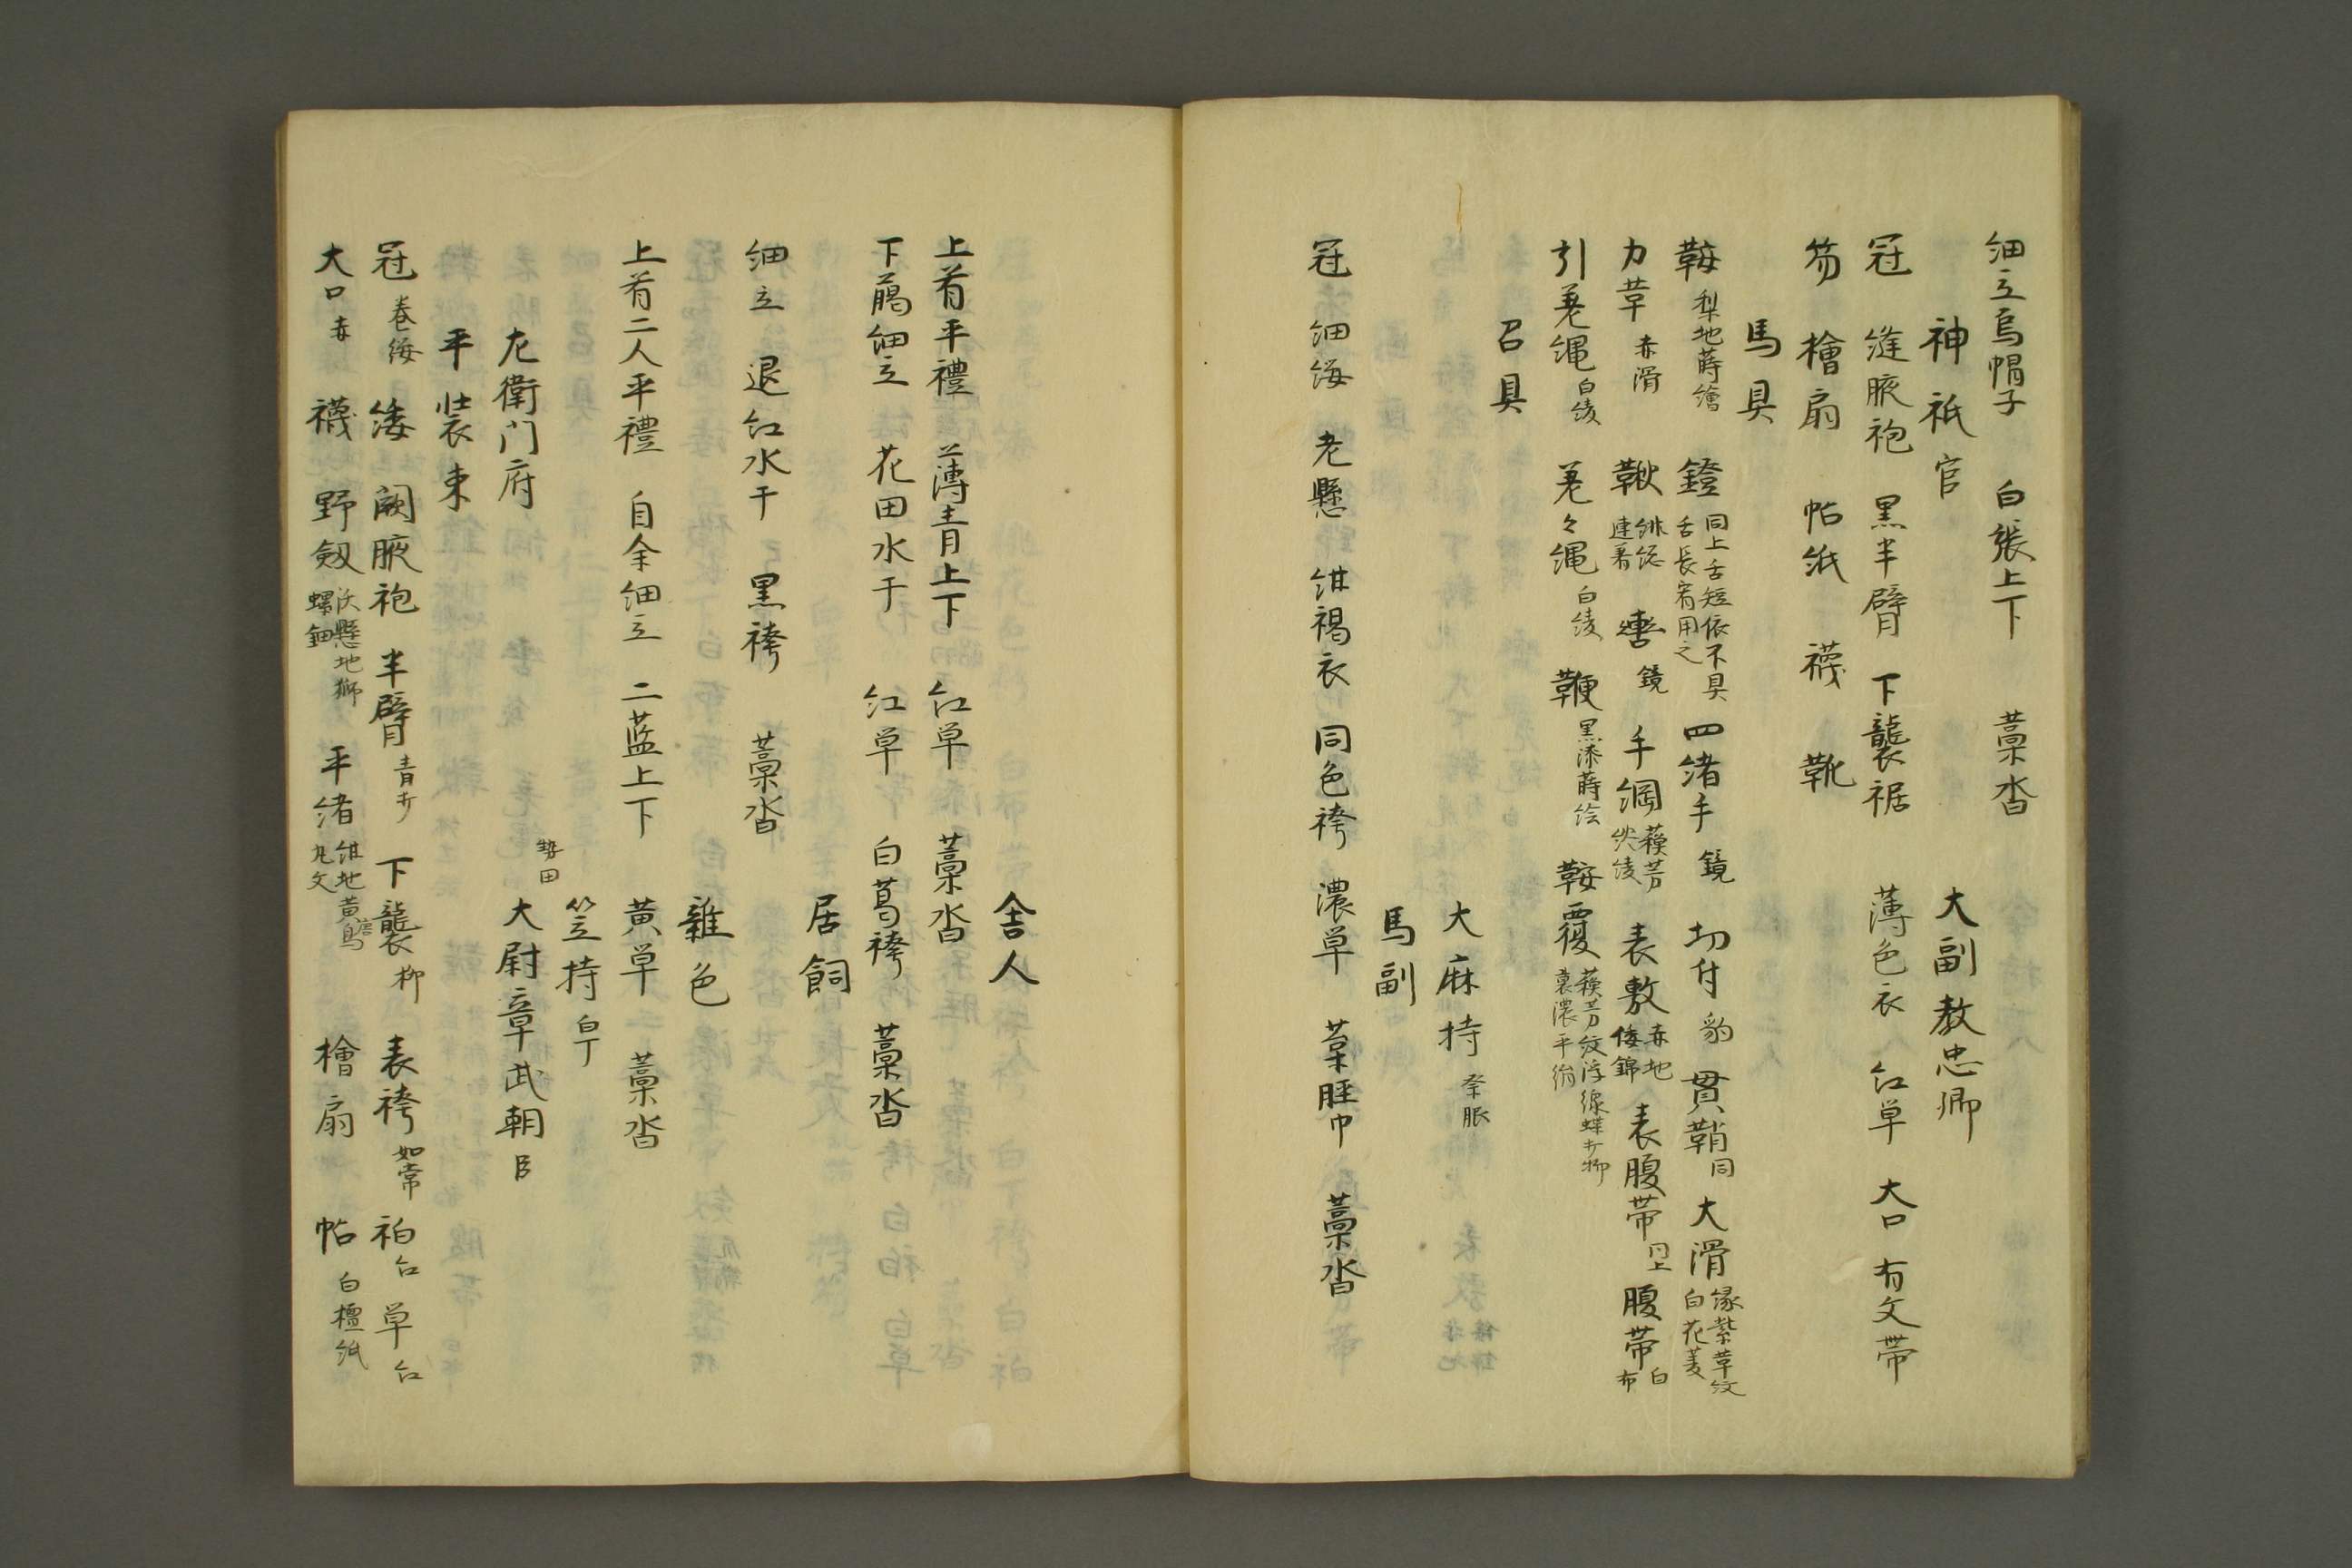 細立烏帽子 白張上下 藁沓
神祇官 大副教忠卿
冠 縫腋袍 黒半臂 下襲裾 薄色衣 紅単 大口 有文帯
笏 檜扇 帖紙 襪 靴
馬具
鞍 梨地蒔繪 鐙 同上舌短依不具 舌長宥用之 四緒手 鏡 切付 豹 貫鞘 同 大滑 縁紫草紋 白花菱
力革 赤滑 鞦 絲総 連著 轡 鏡 手綱 蘓芳 綾 表敷 赤地 倭錦 表腹帯 同上 腹帯 白布
引差縄 白綾 差々縄 白綾 鞭 黒漆蒔絵 鞍覆 蘓芳紋浮線蝶 裏濃平絹
召具
大麻持 祭服
馬副
冠 細纓 老懸 紺褐衣 同色袴 濃単 藁脛巾 藁沓
舎人
上首平禮 薄青上下 紅単 藁沓
下﨟細立 花田水干 紅単 白葛袴 藁沓
居飼
細立 退紅水干 黒袴 藁沓
雑色
上首二人平禮 自余細立 二藍上下 黄単 藁沓
笠持 白丁
左衛门府 勢田 大尉章武朝臣
平装束
冠 巻纓 緌 闕腋袍 半臂 青 下襲 柳 表袴 如常 袙 紅 単 紅
大口 赤 襪 野剱 沃懸地獅 螺鈿 平緒 紺地 丸文 檜扇 帖 白檀紙